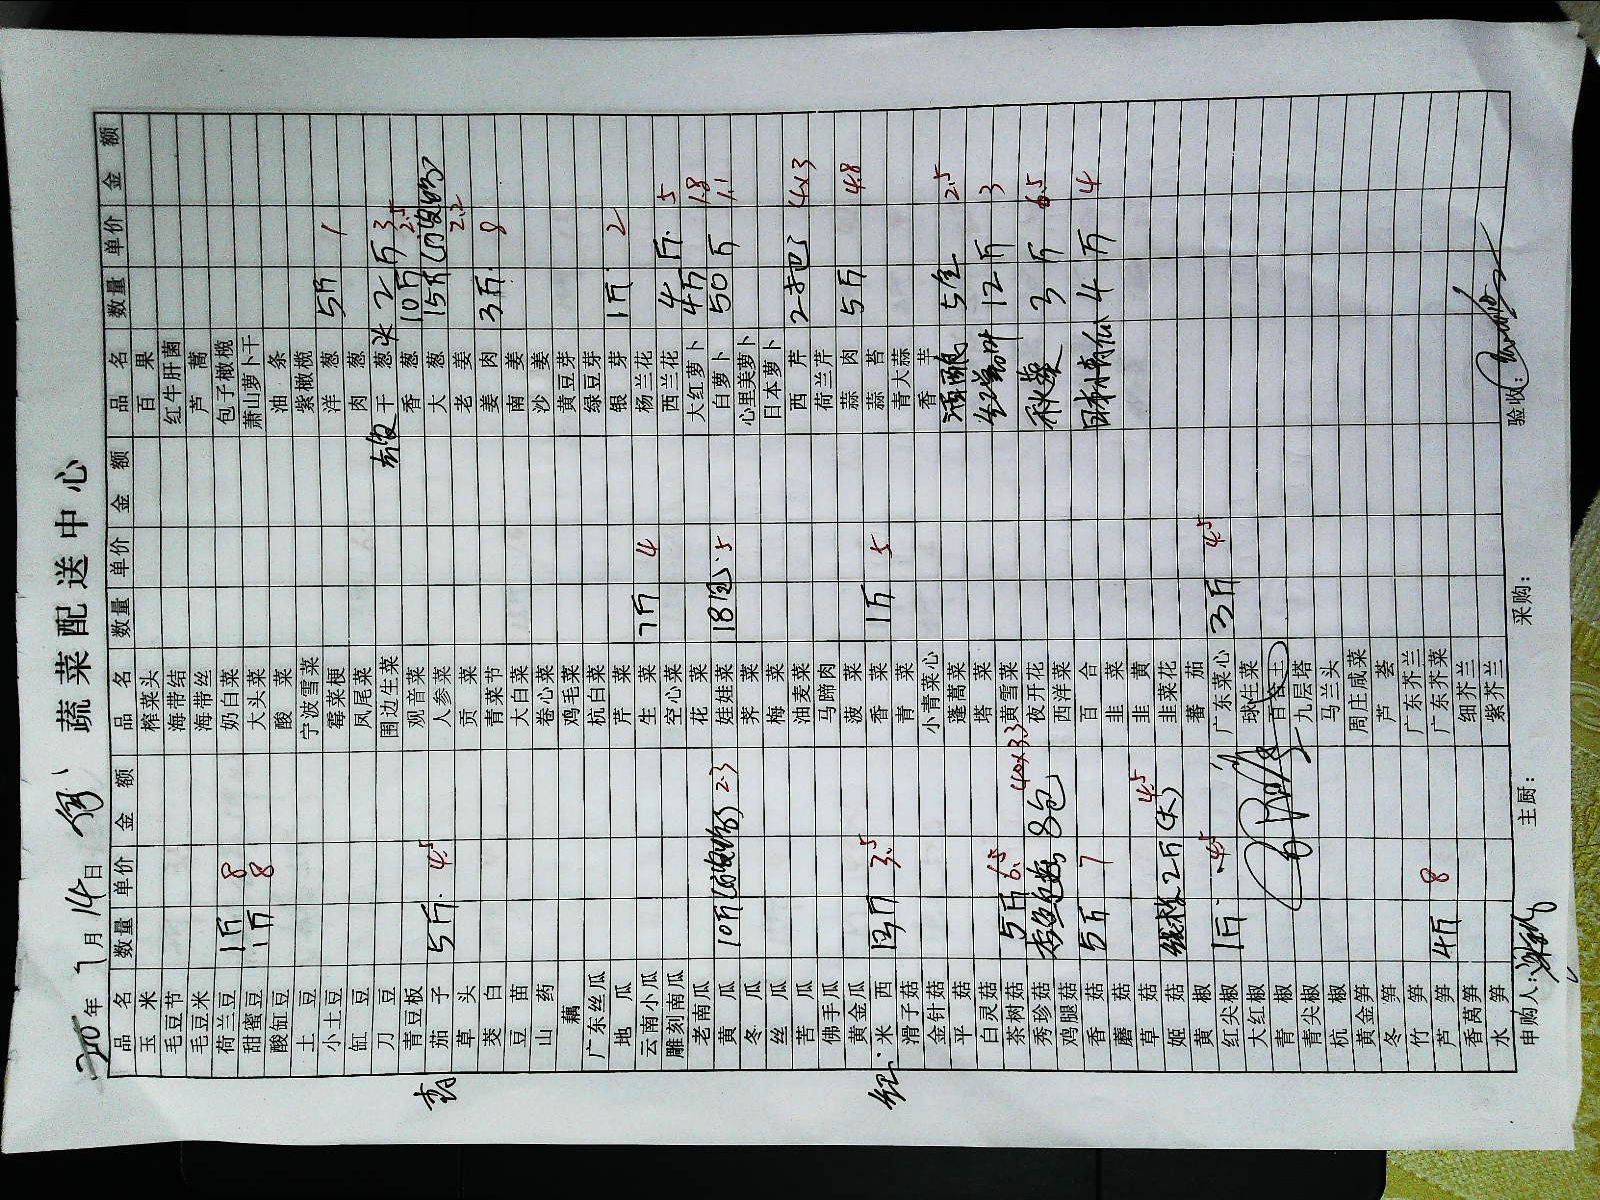 蔬菜配送中心
年 7月14日
品名 数量 单价 金额 品名 数量 单价 金额 品名 数量 单价 金额
玉米 榨菜头 百果
毛豆节 海带结 红牛肝菌
毛豆米 海带丝 芦蒿
荷兰豆 1斤 8 奶白菜 包子橄榄
甜蜜豆 1斤 8 大头菜 萧山萝卜干
酸缸豆 酸菜 油条
土豆 宁波雪菜 紫橄榄
小土豆 霉菜梗 洋葱 5斤 1
缸豆 凤尾菜 肉葱
刀豆 围边生菜 干葱头 2斤 3
青豆板 观音菜 香葱 10斤 2.5
茄子 5斤 4.5 人参菜 大葱 15斤 2.2
草头 贡菜 老姜
茭白 青菜节 姜肉 3斤 8
豆苗 大白菜 南姜
山药 卷心菜 沙姜
藕 鸡毛菜 黄豆芽
广东丝瓜 杭白菜 绿豆芽
地瓜 芹菜 银芽 1斤 2
云南小瓜 生菜 7斤 4 杨兰花
雕刻南瓜 空心菜 西兰花 4斤 5
老南瓜 花菜 大红萝卜 4斤 1.8
黄瓜 10斤 2.3 娃娃菜 18包 5 白萝卜 50斤 1.1
冬瓜 荠菜 心里美萝卜
丝瓜 梅菜 日本萝卜
苦瓜 油麦菜 西芹 2把 4x3
佛手瓜 马蹄肉 荷兰芹
黄金瓜 菠菜 蒜肉 5斤 4.8
红 米西 3.5 香菜 1斤 5 蒜苔
滑子菇 青菜 青大蒜
金针菇 小青菜心 香芋
平菇 蓬蒿菜 5 2.5
白灵菇 塔菜 12斤 3
茶树菇 5斤 6.5 黄雪菜
秀珍菇 8包 夜开花 秋葵 3斤 6.5
鸡腿菇 西洋菜
香菇 5斤 7 百合 日本青瓜 4斤 4
蘑菇 韭菜
草菇 韭黄
姬菇 2斤(大) 4.5 韭菜花
黄椒 蕃茄
红尖椒 1斤 4.5 广东菜心 3斤 4.5
大红椒 球生菜
青椒
青尖椒 九层塔
杭椒 马兰头
黄金笋 周庄咸菜
冬笋 芦荟
竹笋 广东芥兰
芦笋 4斤 8 广东芥菜
香莴笋 细芥兰
水笋 紫芥兰
申购人: 主厨: 采购: 验收: